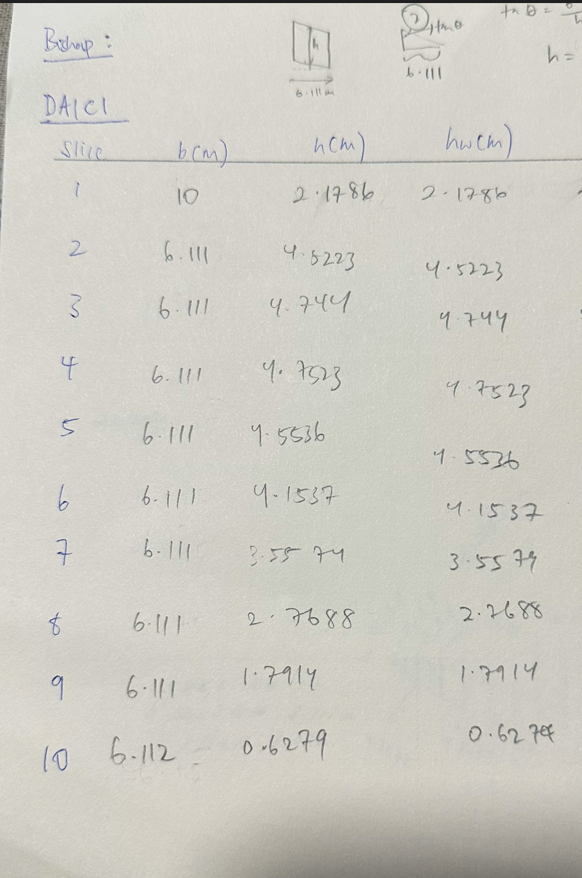 tan θ = 
2, tan θ
h
6.111
h =
Bishop :
6.111m
DA1C1
Slice b(m) h(m) hw(m)
1 10 2.1786 2.1786
2 6.111 4.5223 4.5223
3 6.111 4.744 4.744
4 6.111 4.7523 4.7523
5 6.111 4.5536 4.5536
6 6.111 4.1537 4.1537
7 6.111 3.5574 3.5579
8 6.111 2.7688 2.7688
9 6.111 1.7914 1.7914
10 6.112 0.6279 0.6279